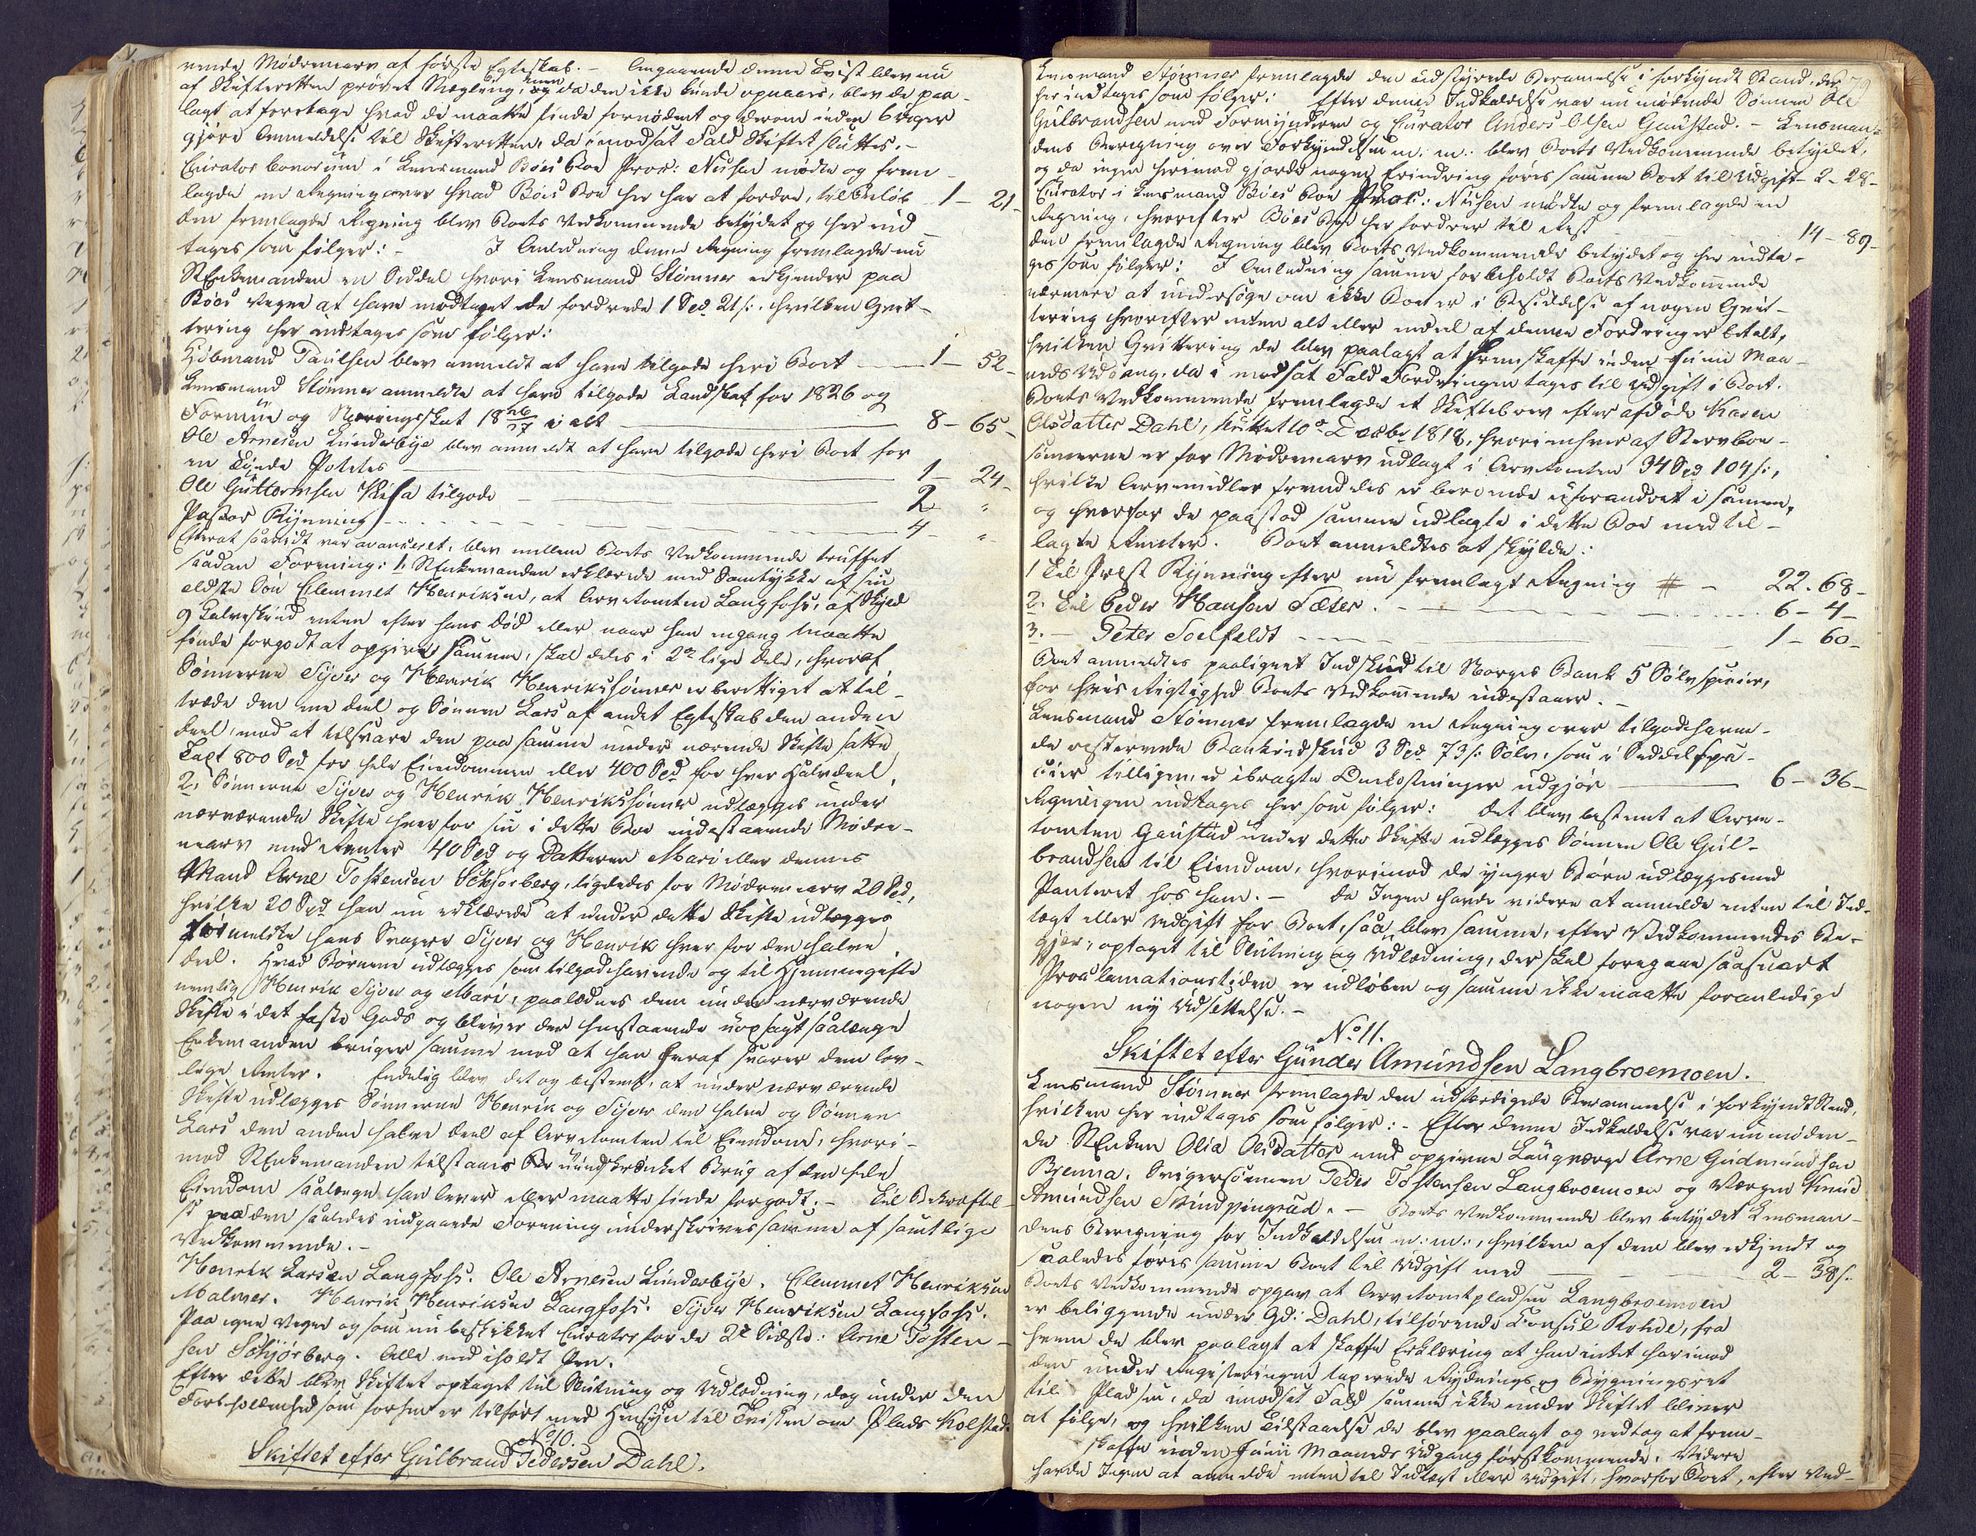 vende Mødrenearv af første Egteskab. – Angaaende denne Tvist blev nu
af Skifteretten prøvet Mægling, men da den ikke kunde opnaaes, blev de paa-
lagt at foretage hvad de maatte finde fornødent og derom inden 6 Uger
gjøre Anmeldelse til Skifteretten, da i modsat Fald Skiftet sluttes. –
Curator bonorum i Lensmand Böes Boe Proc: Niesen mødte og frem-
lagde en Regning over hvad Böes Boe her har at fordre, til Beløb 1 – 21 –
den fremlagde Regning blev Boets Vedkommende betydet og her ind-
tages som følger: – I Anledning denne Regning fremlagde nu
Enkemanden en Seddel hvori Lensmand Stømner erkjender paa
Böes Vegne at have modtaget de fordrede 1 Spd 21 s:, hvilken Qvit-
tering her indtages som følger:
Kjøbmand Paulsen blev anmeldt at have tilgode heri Boet — 1 – 52 –
Lensmand Stømner anmeldte at have tilgode Landskat for 1826 og
Formue og Næringsskat 18 26/27 i alt — 8 – 65 –
Ole Arnesen Linderbye blev anmeldt at have tilgode heri Boet for
en Tønde Potetes — 1 – 24 –
Ole Guttormsen tilgode — 2 – "
Pastor Rynning — 4 – "
Efterat saavidt var avanceret, blev mellem Boets Vedkommende truffet
saadan Forening: 1, Enkemanden erklærede med Samtykke af sin
eldste Søn Clemmet Henriksen, at Arvetomten Langfoss, af Skyld
9 Kalveskind enten efter hans Død eller naar han engang maatte
finde forgodt at opgive samme, skal deles i 2de lige Dele, hvoraf
Sønnerne Syver og Henrik Henrikssønner er berettiget at til-
træde den ene deel og Sønnen Lars af andet Egteskab den anden
deel, mod at tilsvare den paa samme under nærværende Skifte satte
Taxt 800 Spd for hele Eiendommen eller 400 Spd for hver Halvdeel,
2, Sønnerne Syver og Henrik Henrikssønner udlægges under
nærværende Skifte hver for sin i dette Boe indestaaende Mødre-
nearv med Renter 40 Spd og Datteren Mari eller dennes
Mand Arne Tostensen Sckjørberg, ligeledes for Mødrenearv 20 Spd,
hvilke 20 Spd han nu erklærede at under dette Skifte udlægges
formeldte hans Svogere Syver og Henrik hver for den halve
deel. Hvad Børnene udlægges som tilgodehavende og til Hjemmegifte
nemlig Henrik Syver og Mari, paalodnes dem under nærværende
Skifte i det faste Gods og bliver der henstaaende uopsagt saalænge
Enkemanden bruger samme mod at han heraf svarer dem lov-
lige Renter. Endelig blev det og bestemt, at under nærværende
Skifte udlægges Sønnerne Henrik og Syver den halve og Sønnen
Lars den anden halve deel af Arvetomten til Eiendom, hvori-
mod Enkemanden tilstaaes uindskrænket Brug af den hele
Eiendom saalænge han lever eller maatte finde forgodt. – Til Bekræftel-
se paa den saaledes indgaaede Forening underskrives samme af samtlige
Vedkommende. –
Henrik Larsen Langfoss. Ole Arnesen Linderbye. Clemmet Henriksen
Malmer. Henrik Henriksen Langfoss. Syver Henriksen Langfoss.
Paa egne Vegne og som nu beskikket Curator for de 2de Sidste: Arne Tosten-
sen Sckjørberg. Alle med iholdt Pen.
Efter dette blev Skiftet optaget til Slutning og Udlodning, dog under den
Forbeholdenhed som forhen er tilført med Hensyn til Tvisten om Plads Kolstad.
No 10.
Skiftet efter Gulbrand Pedersen Dahl.
79
Lensmand Stømner fremlagde den udstyrede Berammelse i forkyndt Stand, der
her indtages som følger: Efter denne Indkaldelse var nu mødende Sønnen Ole
Gulbrandsen med Formynderen og Curator Anders Olsen Gaustad. – Lensman-
dens Beregning over Forkyndelsen m: m: blev Boets Vedkommende betydet,
og da ingen herimod gjorde nogen Erindring føres samme Boet til Udgift – 2 – 28 –
Curator i Lensmand Böes Boe Proc: Niesen mødte og fremlagde en
Regning, hvorefter Böes Boe her fordrer til Rest — 14 – 89 –
den fremlagde Regning blev Boets Vedkommende betydet og her indta-
ges som følger: I Anledning samme forbeholdt Boets Vedkommende
nærmere at undersøge om ikke Boet er i Besiddelse af nogen Qvit-
tering hvorefter enten alt eller endeel af denne Fordring er betalt,
hvilken Qvittering de blev paalagt at fremskaffe inden Junii Maa-
neds Udgang, da i modsat Fald Fordringen tages til Udgift i Boet.
Boets Vedkommende fremlagde et Skiftebrev efter afdøde Karen
Olsdatter Dahl, sluttet 10de Decbr 1818, hvori enhver af Stervboe-
sønnerne er for Mødrenearv udlagt i Arvetomten 34 Spd 104 s:,
hvilke Arvemidler fremdeles er beroende uforandret i samme,
og hvorfor de paastod samme udlagte i dette Boe med til-
lagte Renter. Boet anmeldtes at skylde:
1 Til Præst Rynning efter nu fremlagt Regning # – 22. 68 –
2. Til Peder Hansen Sæter. — 6 – 4 –
3. – Peter Soelfeldt — 1 – 60 –
Boet anmeldtes paalignet Indskud til Norges Bank 5 Sølvspecier,
for hvis Rigtighed Boets Vedkommende indestaaer. –
Lensmand Stømner fremlagde en Regning over tilgodehaven-
de resterende Bankindskud 3 Spd 73 s: Sølv, som i Seddelspe-
cier tilligemed ibragte Omkostninger udgjør — 6 – 36 –
Regningen indtages her som følger: Det blev bestemt at Arve-
tomten Gaustad under dette Skifte udlægges Sønnen Ole Gul-
brandsen til Eiendom, hvorimod de yngre Børn udlægges med
Panteret hos ham. – Da Ingen havde videre at anmelde enten til Ind-
tægt eller Udgift for Boet, saa blev samme, efter Vedkommendes Be-
gjær, optaget til Slutning og Udlodning, der skal foregaae saasnart
Proclamationstiden er udløben og samme ikke maatte foranledige
nogen ny Udsettelse. –
No 11.
Skiftet efter Gunder Amundsen Langbroemoen.
Lensmand Stømner fremlagde den udfærdigede Berammelse i forkyndt Stand,
hvilken her indtages som følger: – Efter denne Indkaldelse var nu møden-
de Enken Olia Olsdatter med opgivne Laugværge Arne Gudmundsen
Brenna, Svigersønnen Peder Tostensen Langbroemoen og Værgen Knud
Amundsen Skindpingrud. – Boets Vedkommende blev betydet Lensman-
dens Beregning for Indkaldelsen m: m:, hvilken af dem blev erkjendt og
saaledes føres samme Boet til Udgift med — 2 – 38 s.
Boets Vedkommende opgav at Arvetomtpladsen Langbroemoen
er beliggende under Gd: Dahl, tilhørende Consul Rohde, fra
hvem de blev paalagt at skaffe Erklæring at han intet har imod
den under Registeringen taxerede Rydnings og Bygningsret
til Pladsen, da i modsat Fald samme ikke under Skiftet bliver
at følge, og hvilken Tilstaaelse de blev paalagt og vedtog at frem-
skaffe inden Junii Maaneds Udgang førstkommende. Videre
havde Ingen at anmelde enten til Indtægt eller Udgift, hvorfor Boet, efter Ved-